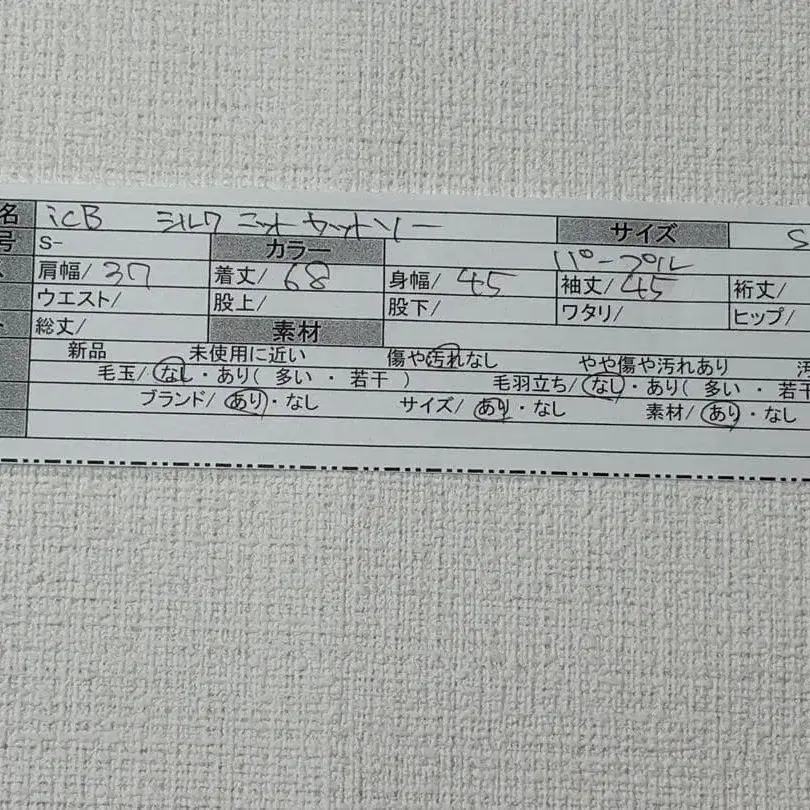 名 icB シルク ニット カットソー サイズ S
号 S- カラー パープル
肩幅/ 37 着丈/ 68 身幅/ 45 袖丈/ 45 裄丈/
ウエスト/ 股上/ 股下/ ワタリ/ ヒップ/
総丈/ 素材
新品 未使用に近い 傷や汚れなし やや傷や汚れあり 汚
毛玉/ なし・あり( 多い ・ 若干 ) 毛羽立ち/ なし・あり( 多い ・ 若干
ブランド/ あり・なし サイズ/ あり・なし 素材/ あり・なし